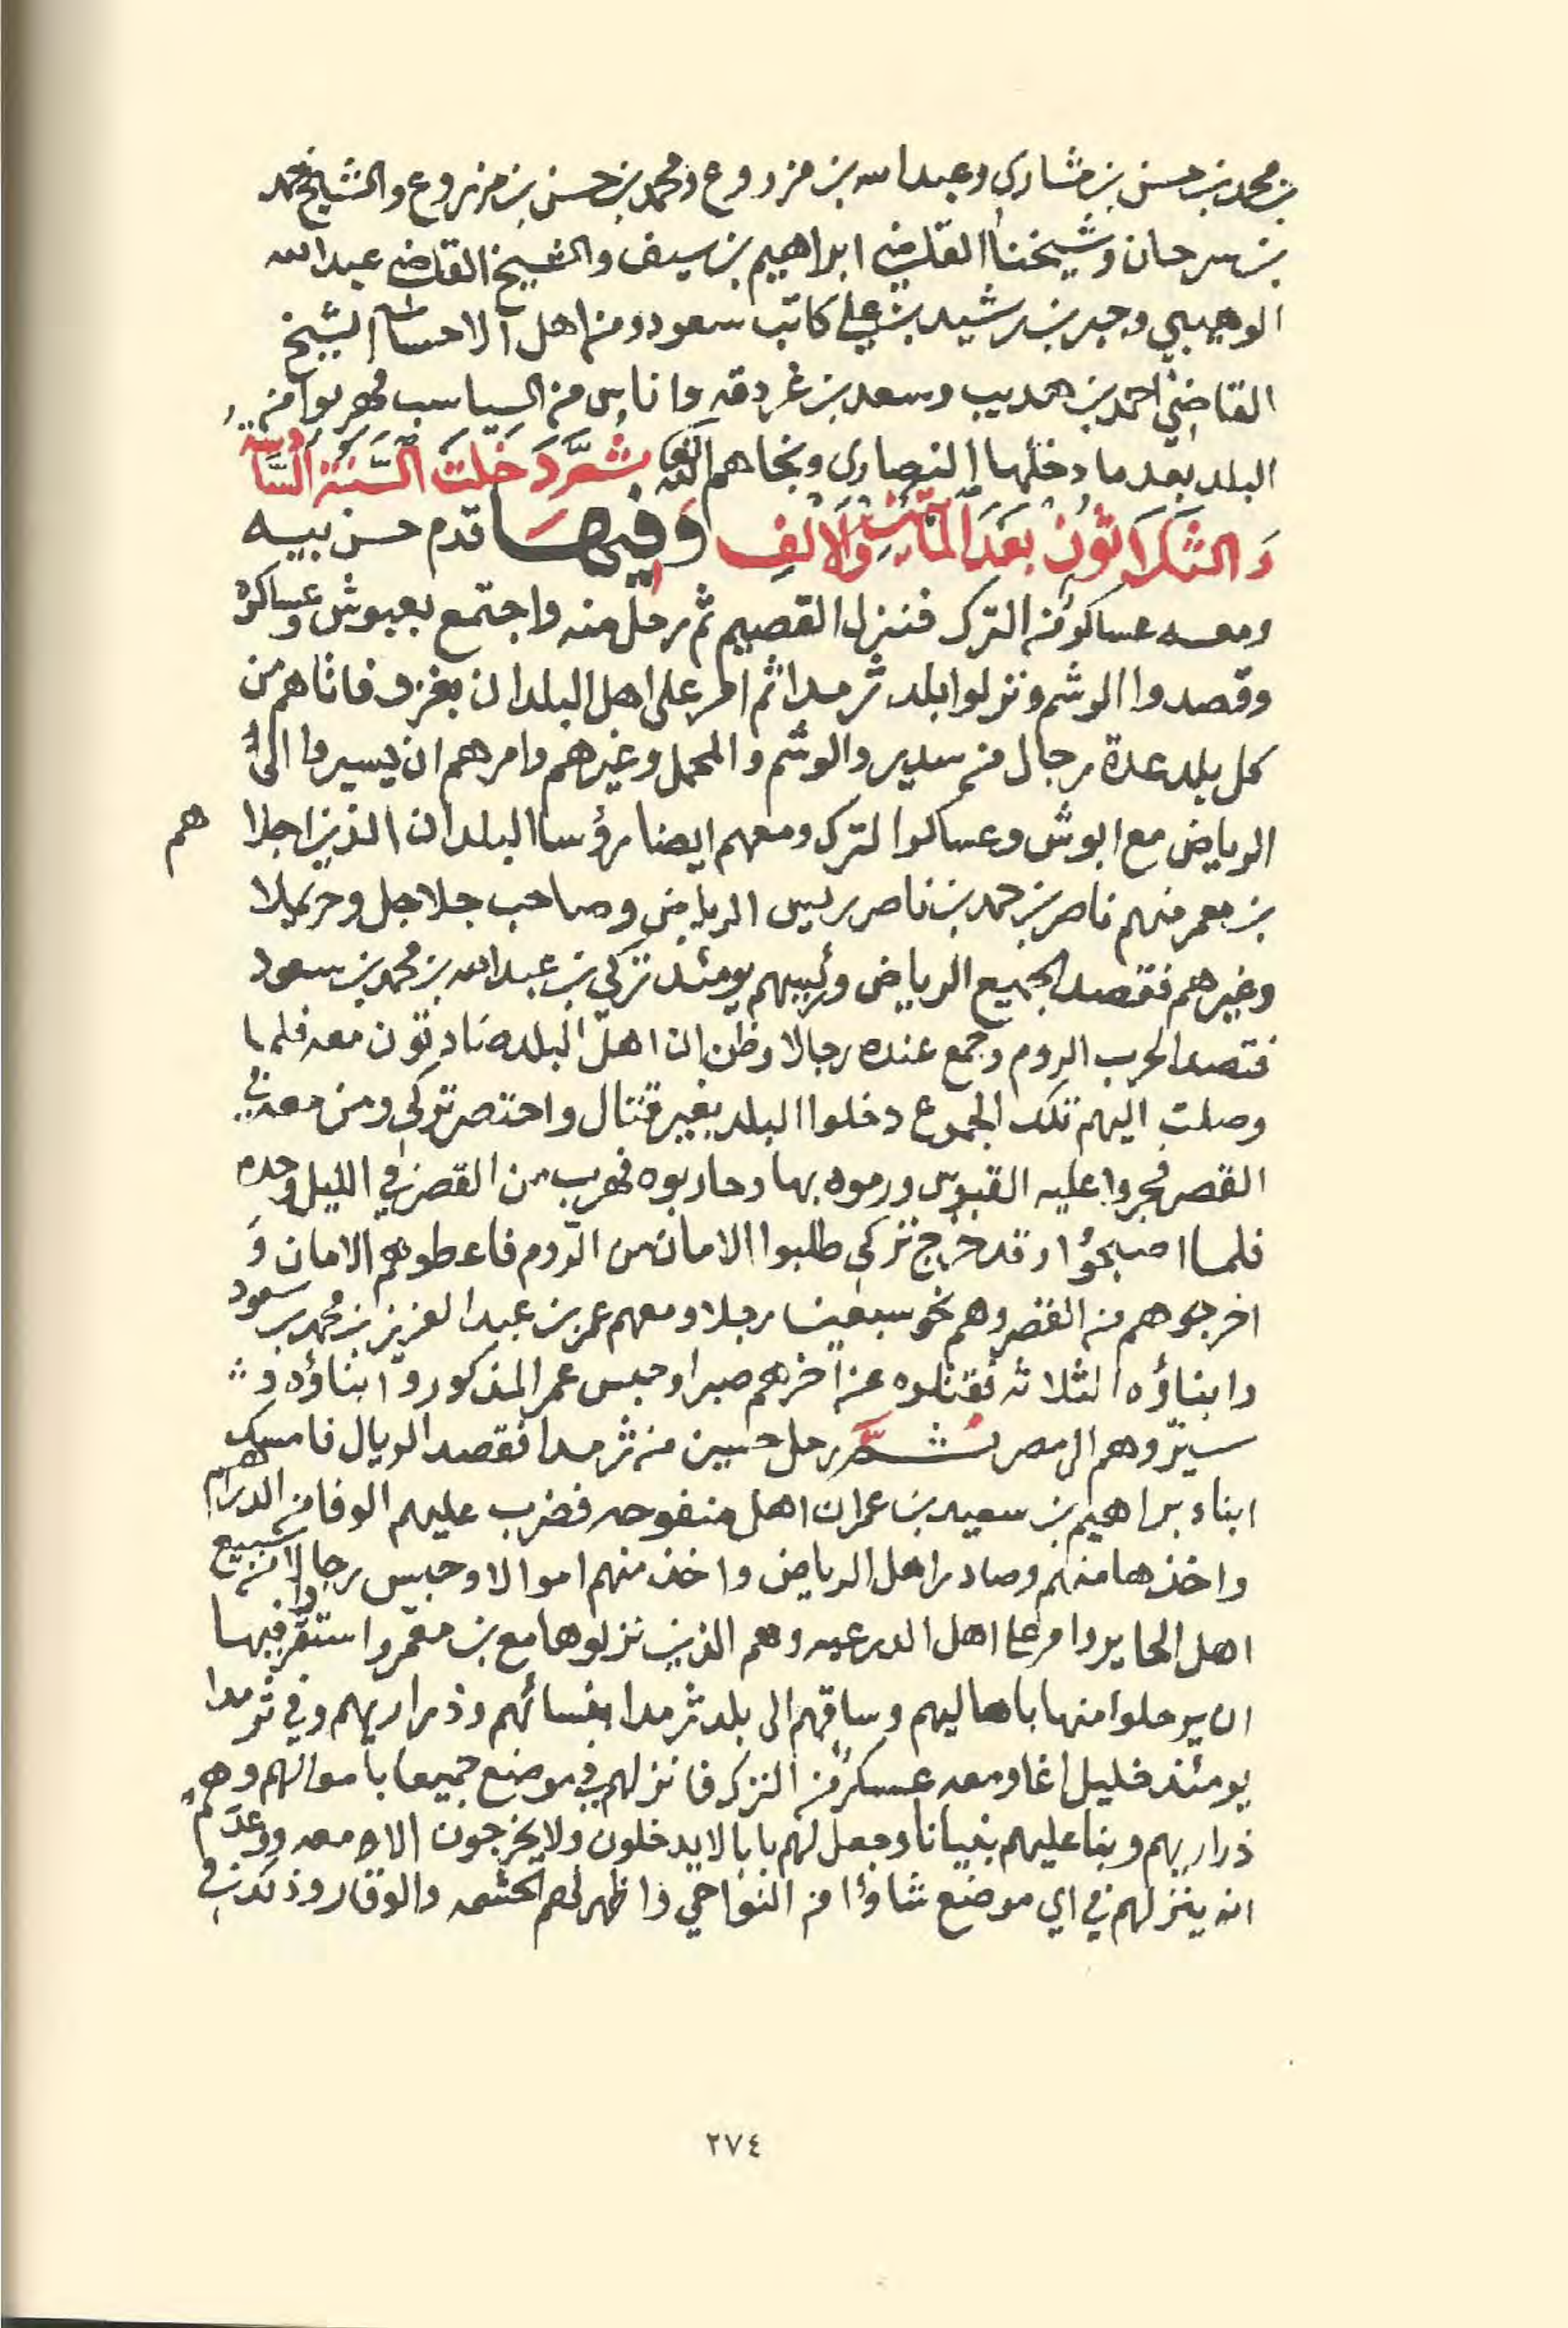 بن محمد بن حسن بن مشاري وعبدالله بن مزروع ومحمد بن حسن بن مزروع والشيخ محمد
بن سرحان وشيخنا القاضي ابراهيم بن سيف والشيخ القاضي عبدالله
الوهيبي وجبر بن رشيد بن علي كاتب سعود ومن اهل الاحساء الشيخ
القاضي احمد بن حمد يب وسعد بن غردقه واناس من السياسب فهربوا من
البلد بعد ما دخلها النصارى ونجاهم الله ثُمَّ دَخَلَتِ السَّنَةُ السَّادِسَةُ
وَالثَلَاثُونَ بَعْدَ المَائَتَيْنِ وَالْأَلْفِ وَفِيهَا قدم حسن بيه
ومعه عساكر من الترك فنزل القصيم ثم رحل منه واجتمع بعبوش وعساكره
وقصدوا الوشم ونزلوا بلد ثرمدا ثم امر على اهل البلدان بغزو فاتاهم من
كل بلد عدة رجال من سدير والوشم والمحمل وغيرهم وامرهم ان يسيروا الى
الرياض مع ابوش وعساكر الترك ومعهم ايضا رؤسا البلدان الذين اجلا هم
بن معمر منهم ناصر بن حمد بن ناصر ريس الرياض وصاحب جلاجل وحريملا
وغيرهم فقصد الجميع الرياض ورئيسهم يومئذ تركي بن عبدالله بن محمد بن سعود
فتصد الحرب الروم وجمع عنده رجالا وظن ان اهل البلد صادقون معه فلما
وصلت اليهم تلك الجموع دخلوا البلد بغير قتال واحتصر تركي ومن معه في
القصر فجروا عليه القبوس ورموه بها وحاربوه فهرب من القصر في الليل وحده
فلما اصبحوا وقد خرج تركي طلبوا الامان من الروم فاعطوهم الامان وَ
اخرجوهم من القصر وهم نحو سبعين رجلا ومعهم عمر بن عبدالعزيز بن محمد بن سعود
وابناؤه الثلاثه فقتلوه عن آخرهم صبرا وحبس عمر المذكور وابناؤه و
سيّروهم الى مصر ثُمَّ رحل حسين من ثرمدا فقصد الريال فامسك
ابناء براهيم بن سعيد بن عمران اهل منفوحه فضرب عليهم الوفا من الدراهم
واخذها منهم وصادر اهل الرياض واخذ منهم اموالا وحبس رجالا من سبيع
اهل الحاير وامر على اهل الدرعيه وهم الذين نزلوها مع بن معمر واستقر فيها
ان يرحلوا منها باهاليهم وساقهم الى بلد ثرمدا بنسائهم وذراريهم وفي ثرمدا
يومئذ خليل اغا ومعه عسكر من الترك فانزلهم في موضع جميعا باموالهم وهم
ذراريهم وبنا عليهم بنيانا وجعل لهم بابا لا يدخلون ولا يخرجون الا معه ووعدهم
انه ينزلهم في اي موضع شاؤا من النواحي واظهر لهم الحشمه والوقار وذلك في
٢٧٤